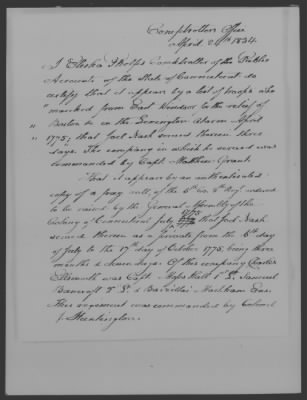 Comptrollers Office
April 24th 1834.
I Elisha Phelps Comptroller of the Public
Accounts of the State of Connecticut do
certify that it appears by a list of troops who
" marched from East Windsor to the relief of
" Boston &c in the Lexington Alarm April
" 1775, that Joel Nash served therein three
days. The company in which he served was
commanded by Capt. Matthew Grant.
That it appears by an authenticated
copy of a pay roll, of the 5th Co. 8th Regt. ordered
to be raised by the General Assembly of the
Colony of Connecticut July 1775 that Joel Nash
served therein as a private from the 6th day
of July to the 17th day of October 1775, being three
months & eleven days. Of this company Charles
Ellsworth was Capt. 1st L. Samuel
Bancroft 2 L. & Markham Ens.
This regiment was commanded by Colonel
J. Huntington.